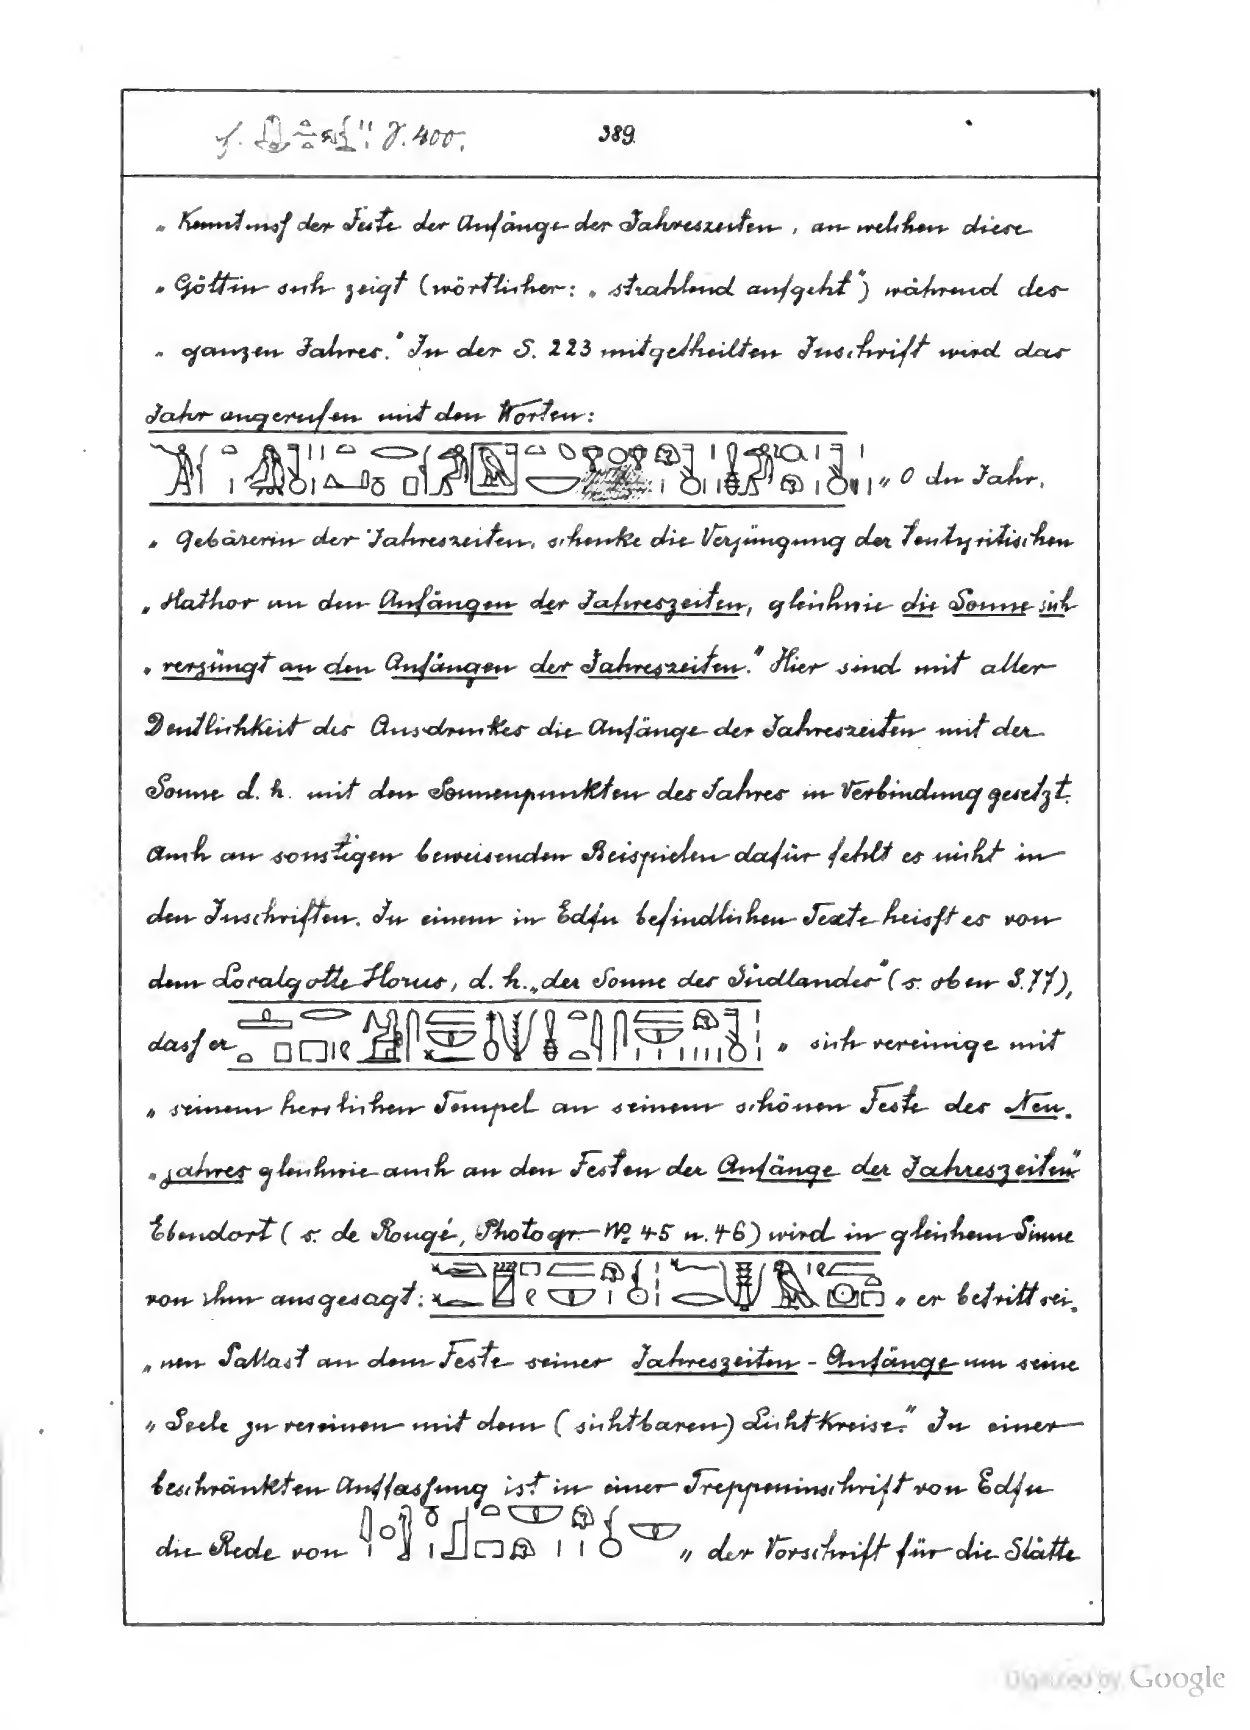 S. 400.
389.
„ Kenntniss der Feste der Anfänge der Jahreszeiten, an welchen diese
„ Göttin sich zeigt (wörtlicher: „ strahlend aufgeht“) während des
„ ganzen Jahres.“ In der S. 223 mitgetheilten Inschrift wird das
Jahr angerufen mit den Worten:
„ O du Jahr,
„ Gebärerin der Jahreszeiten, schenke die Verjüngung der Tentyritischen
„ Hathor an den Anfängen der Jahreszeiten, gleichwie die Sonne sich
„ verjüngt an den Anfängen der Jahreszeiten.“ Hier sind mit aller
Deutlichkeit des Ausdruckes die Anfänge der Jahreszeiten mit der
Sonne d. h. mit den Sonnenpunkten des Jahres in Verbindung gesetzt.
Auch an sonstigen beweisenden Beispielen dafür fehlt es nicht in
den Inschriften. In einem in Edfu befindlichen Texte heisst es von
dem Localgotte Horus, d. h. „der Sonne des Südlandes“ (s. oben S. 77),
dass er „ sich vereinige mit
„ seinem herrlichen Tempel an seinem schönen Feste des Neu-
„ jahres gleichwie auch an den Festen der Anfänge der Jahreszeiten“.
Ebendort (s. de Rougé, Photogr. No 45 u. 46) wird in gleichem Sinne
von ihm ausgesagt: „ er betritt sei-
„ nen Pallast an dem Feste seiner Jahreszeiten-Anfänge um seine
„ Seele zu vereinen mit dem (sichtbaren) Lichtkreise.“ In einer
beschränkten Auffassung ist in einer Treppeninschrift von Edfu
die Rede von „ der Vorschrift für die Stätte
Digitized by Google